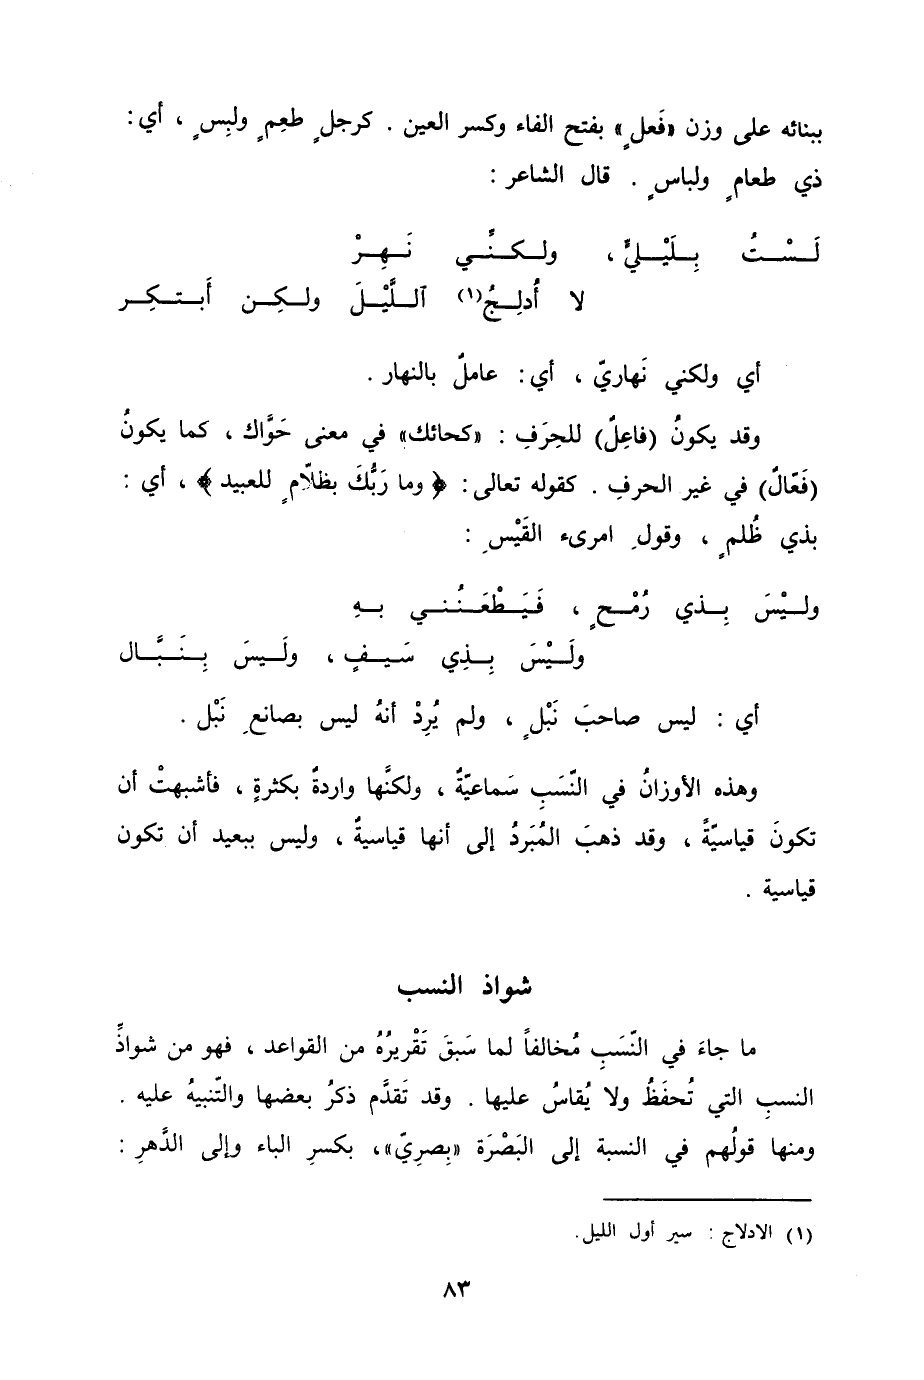 ببنائه على وزن «فَعلٍ» بفتح الفاء وكسر العين . كرجلٍ طعِمٍ ولبِسٍ ، أي :
ذي طعامٍ ولباسٍ . قال الشاعر :
لَسْتُ بِلَيْلِيٍّ ، ولكنَّي نَهِرْ
لا أُدلِجُ(١) آللَّيْلَ ولكِن أَبتكِر
أي ولكني نَهاريّ ، أي : عاملٌ بالنهار .
وقد يكونُ (فاعِلٌ) للحِرَفِ : «كحائك» في معنى حَوَّاك ، كما يكونُ
(فَعّالٌ) في غير الحرفِ . كقوله تعالى : ﴿ وما رَبُّكَ بظلّامٍ للعبيد ﴾ ، أي :
بذي ظُلمٍ ، وقولِ امرىء القَيْسِ :
وليْسَ بِذي رُمْحٍ ، فَيَطْعَنُني بهِ
ولَيْسَ بِذِي سَيفٍ ، ولَيسَ بِنَبَّال
أي : ليس صاحبَ نَبْلٍ ، ولم يُرِدْ أنهُ ليس بصانعِ نَبْل .
وهذه الأوزانُ في النّسَبِ سَماعيّةٌ ، ولكنَّها واردةٌ بكثرةٍ ، فأشبهتْ أن
تكونَ قياسيّةً ، وقد ذهبَ المُبَردُ إلى أنها قياسيةٌ ، وليس ببعيد أن تكون
قياسية .
شواذ النسب
ما جاءَ في النّسَبِ مُخالفاً لما سَبقَ تَقْريرُهُ من القواعد ، فهو من شواذِّ
النسبِ التي تُحفَظُ ولا يُقاسُ عليها . وقد تَقدَّم ذكرُ بعضها والتّنبيهُ عليه .
ومنها قولُهم في النسبة إلى البَصْرَة «بِصرِيّ»، بكسرِ الباء وإلى الدَّهرِ :
(١) الادلاج : سير أول الليل.
٨٣